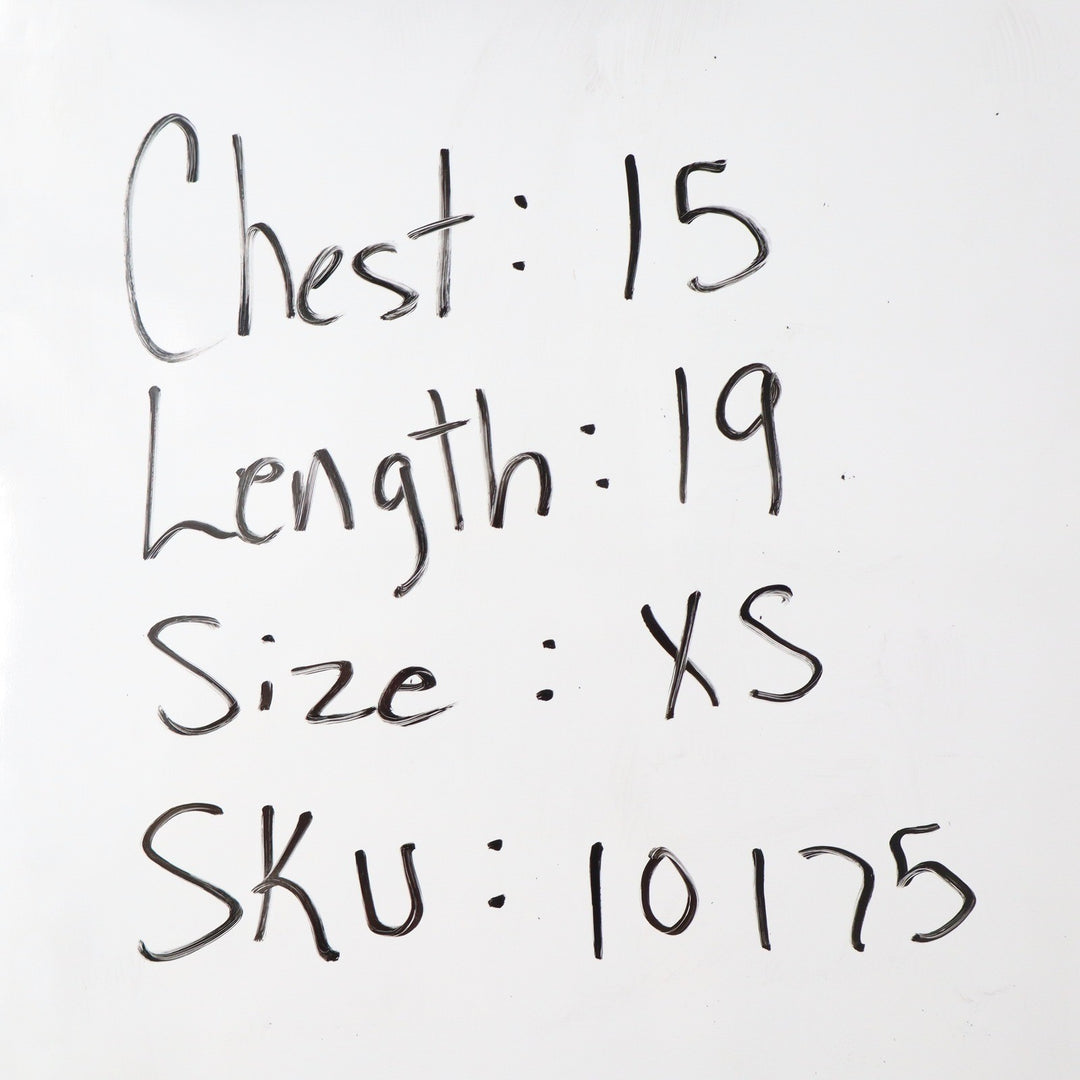 Chest: 15
Length: 19
Size: XS
SKU: 10175